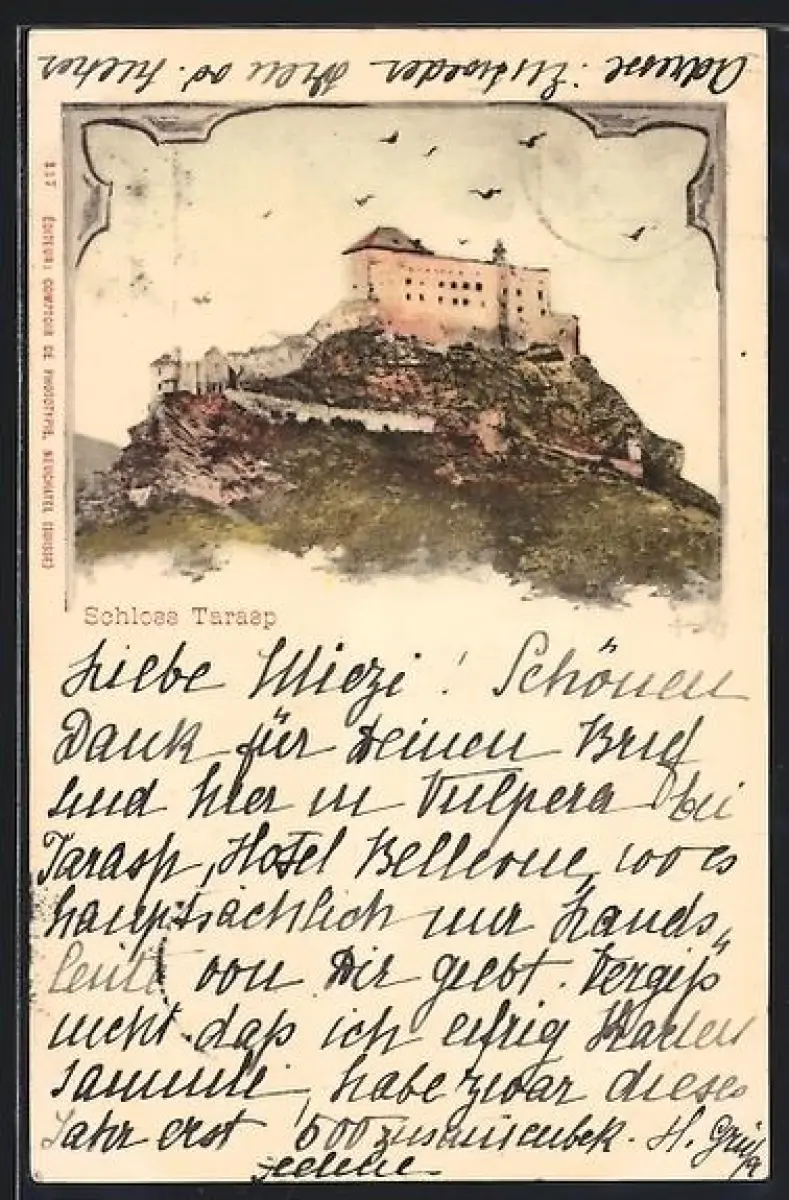 Adresse: Entweder Wien od. hieher
317 EDITEUR: COMPTOIR DE PHOTOTYPIE, NEUCHATEL (SUISSE)
Schloss Tarasp
Liebe Miezi! Schönen
Dank für Deinen Brief
sind hier in Vulpera bei
Tarasp, Hotel Bellevue, wo es
hauptsächlich nur Lands„
leute von Dir giebt. Vergiß
nicht daß ich eifrig Karten
sammle, habe zwar dieses
Jahr erst 500 zusammenbek.
H.